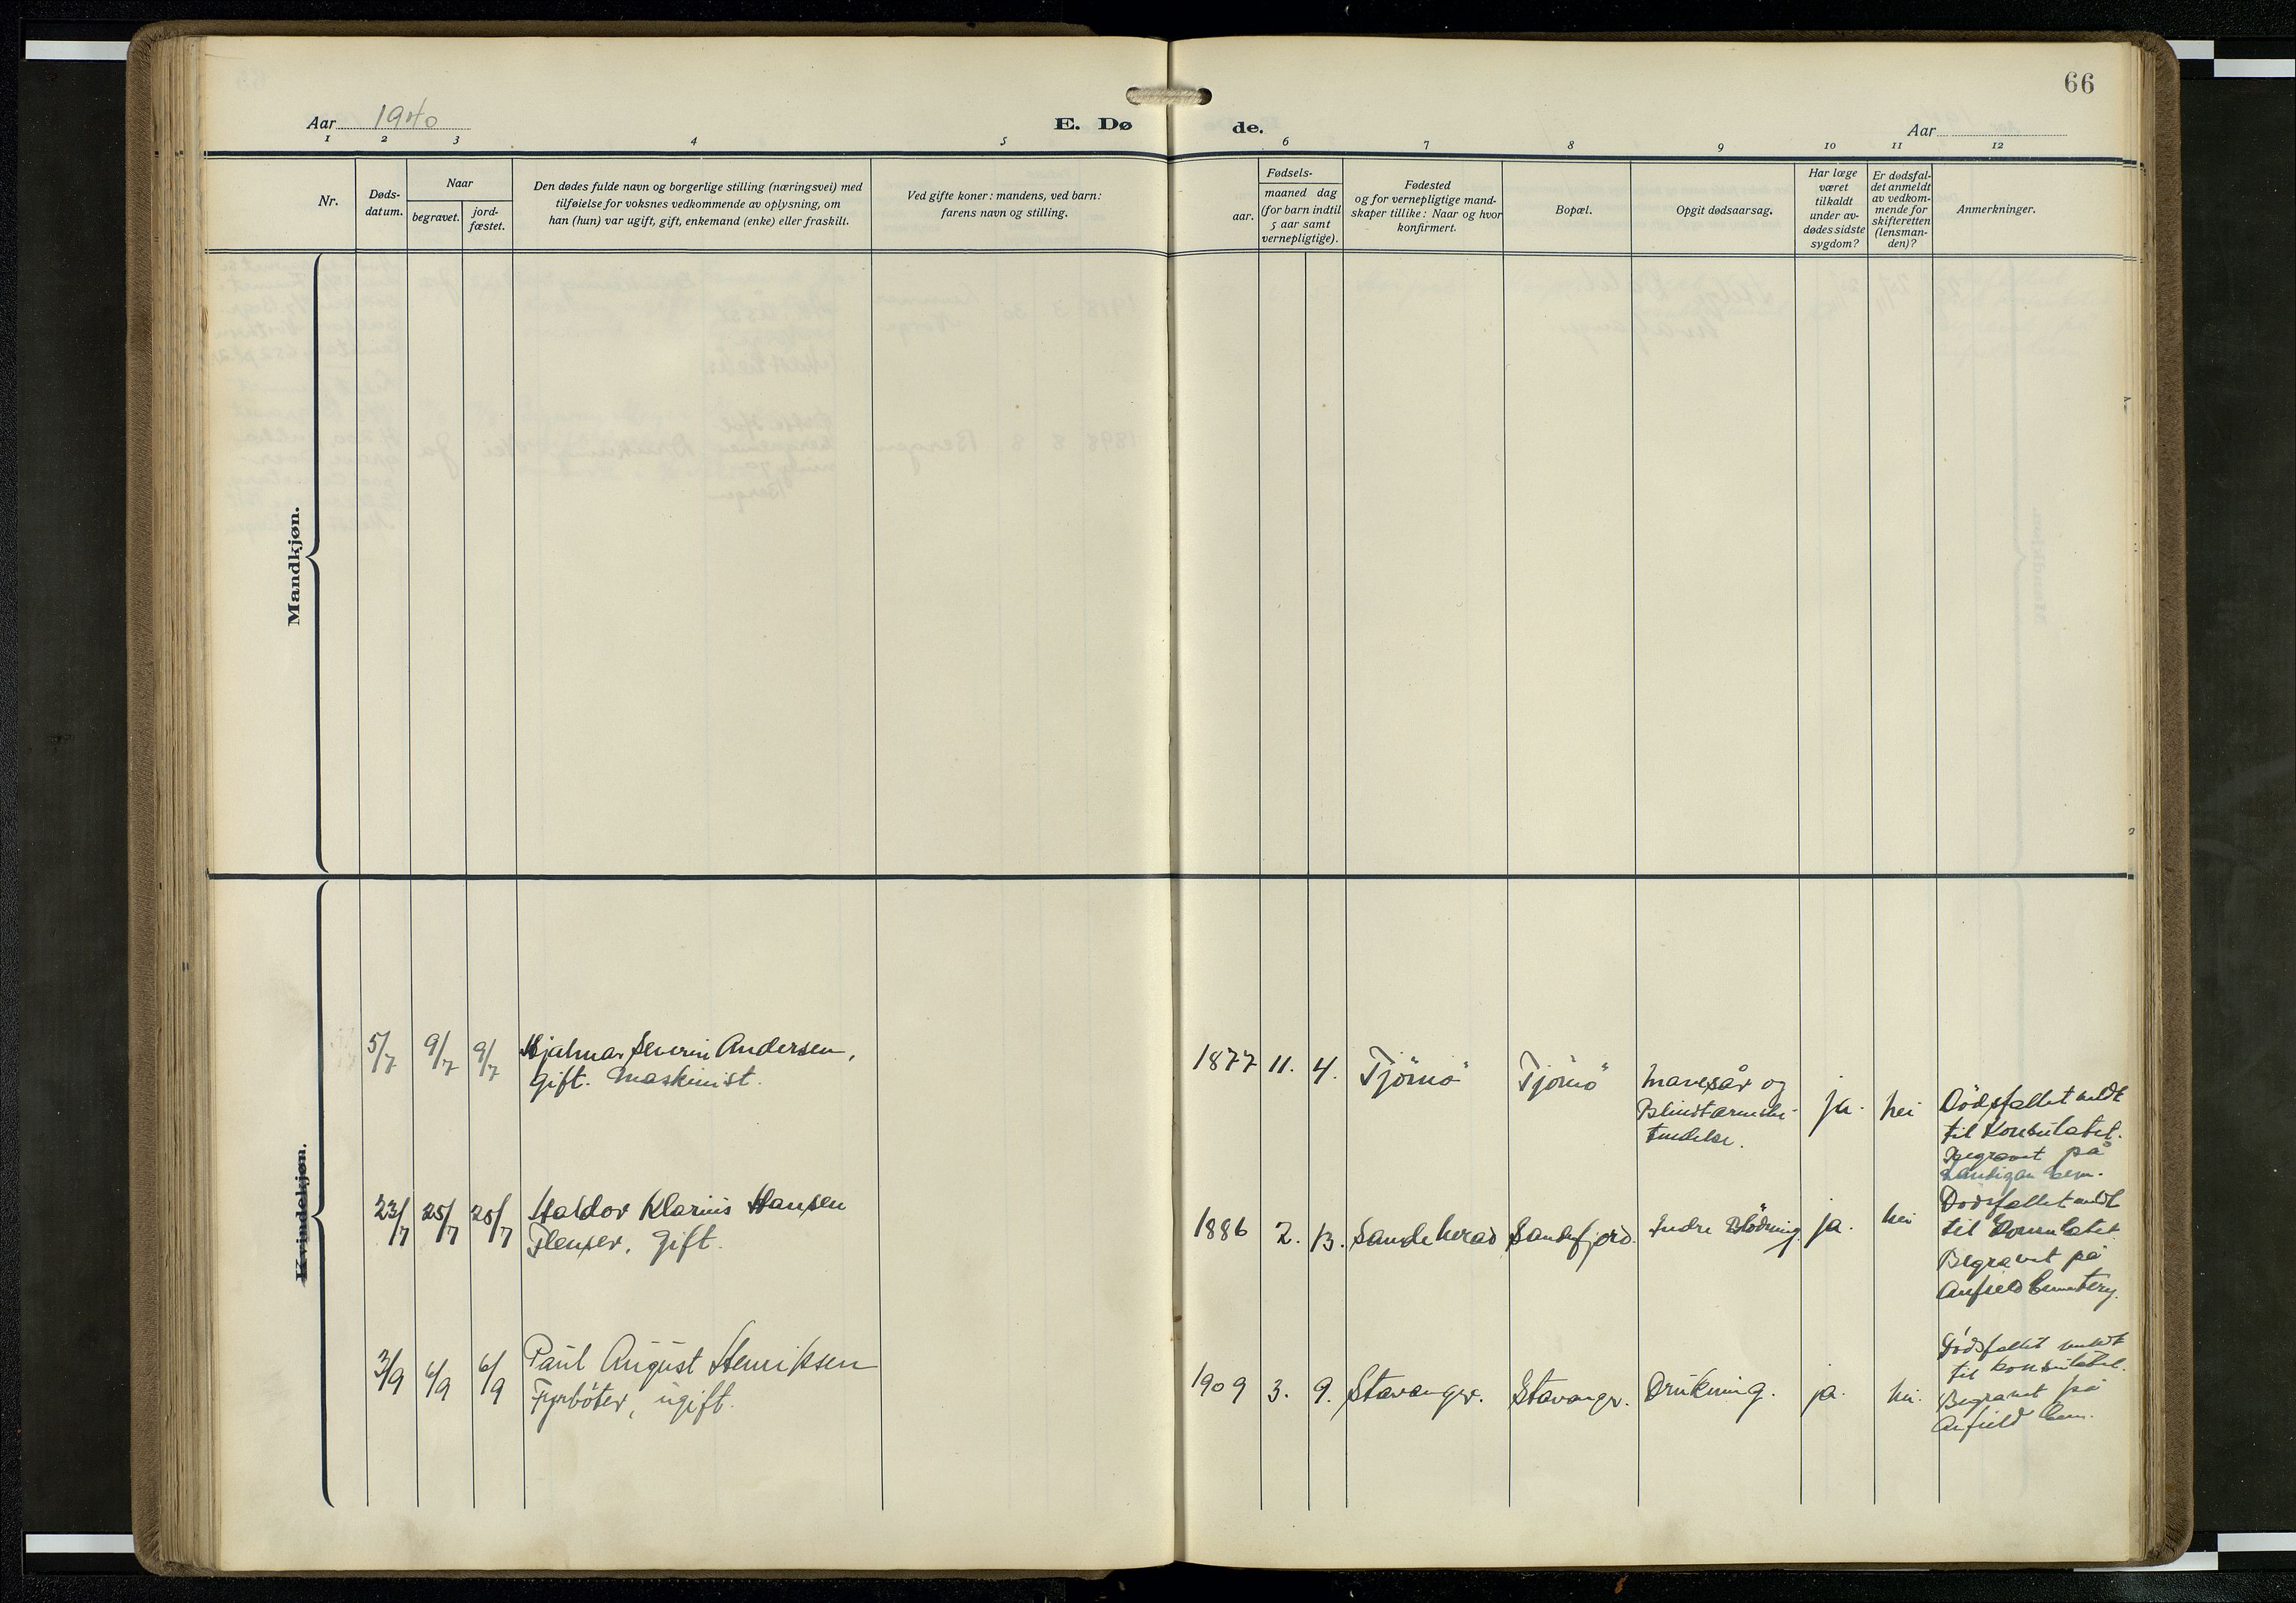 66
Aar 1940
E. Døde.
Aar
1 2 3 4 5 6 7 8 9 10 11 12
Nr.
Døds-
datum.
Naar
begravet.
jord-
fæstet.
Den dødes fulde navn og borgerlige stilling (næringsvei) med
tilføielse for voksnes vedkommende av oplysning, om
han (hun) var ugift, gift, enkemand (enke) eller fraskilt.
Ved gifte koner: mandens, ved barn:
farens navn og stilling.
Fødsels-
aar.
maaned dag
(for barn indtil
5 aar samt
vernepligtige).
Fødested
og for vernepligtige mand-
skaper tillike: Naar og hvor
konfirmert.
Bopæl.
Opgit dødsaarsag.
Har læge
været
tilkaldt
under av-
dødes sidste
sygdom?
Er dødsfal-
det anmeldt
av vedkom-
mende for
skifteretten
(lensman-
den)?
Anmerkninger.
Mandkjøn.
Kvindekjøn.
5/7 9/7 9/7 Hjalmar Severin Andersen,
gift. Maskinist.
1877 11. 4. Tjömö Tjömö
Mavesår og
Blindtarmbe-
tendelse.
ja. nei
Dödsfallet meldt
til Konsulatet.
Begravet på
Cem.
23/7 25/7 25/7 Haldor Klarius Hansen
Flenser, Gift.
1886 2. 13. Sandeherad Sandefjord. Indre Blödning ja. nei
Dödsfallet meldt
til Konsulatet.
Begravet på
Anfield Cemetery.
3/9 6/9 6/9 Paul August Henriksen
Fyrböter, ugift.
1909 3. 9. Stavanger. Stavanger. Drukning. ja. nei.
Dödsfallet meldt
til konsulatet.
Begravet på
Anfield Cem.